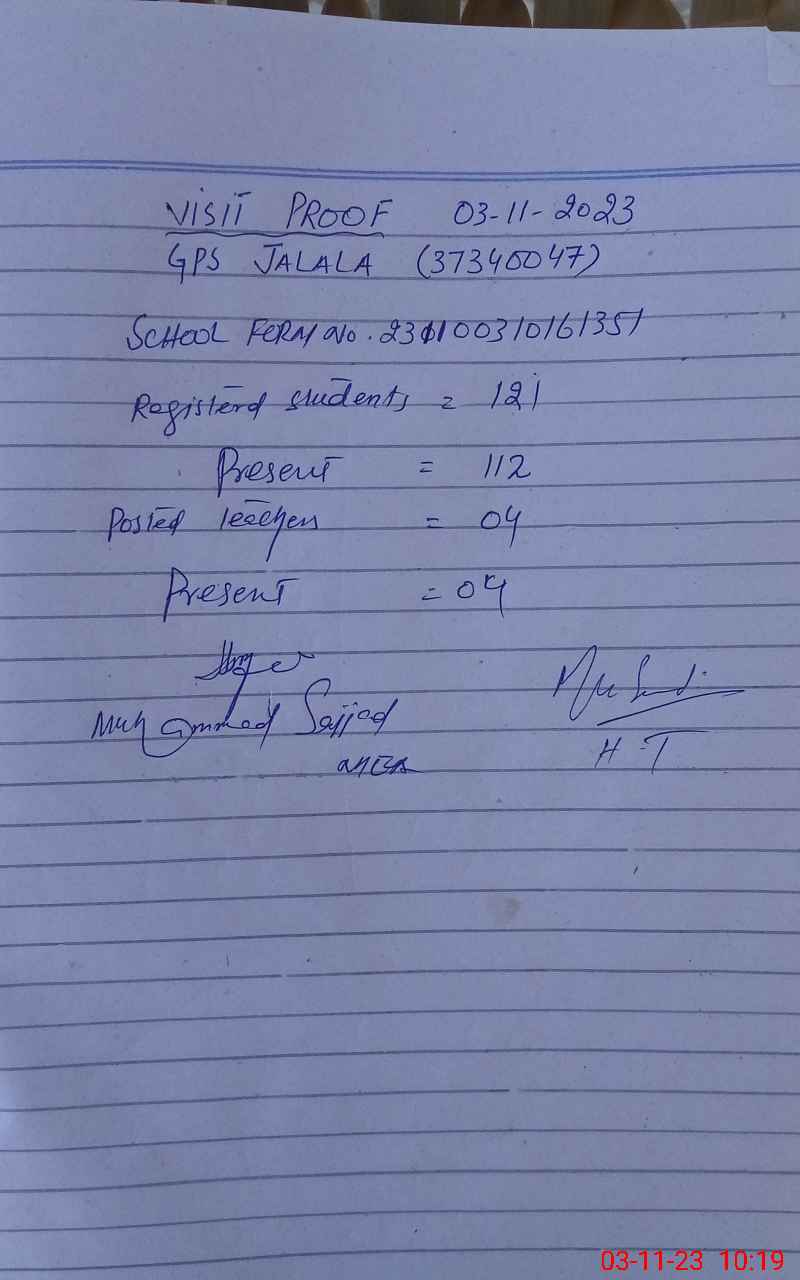 VISIT PROOF 03-11-2023
GPS JALALA (37340047)
SCHOOL FORM No. 231100310161351
Registerd students = 121
Present = 112
Posted teachers = 04
Present = 04
Muhammad Sajjad
H-T
03-11-23 10:19